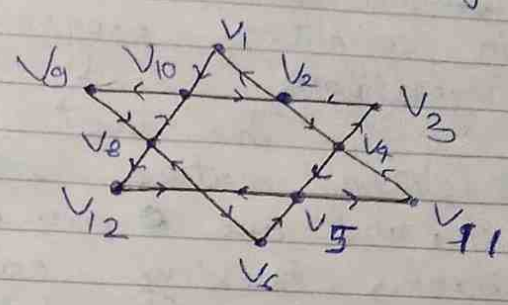 V1
V9 V10 V2
V3
V8 V4
V12 V5 V11
V6